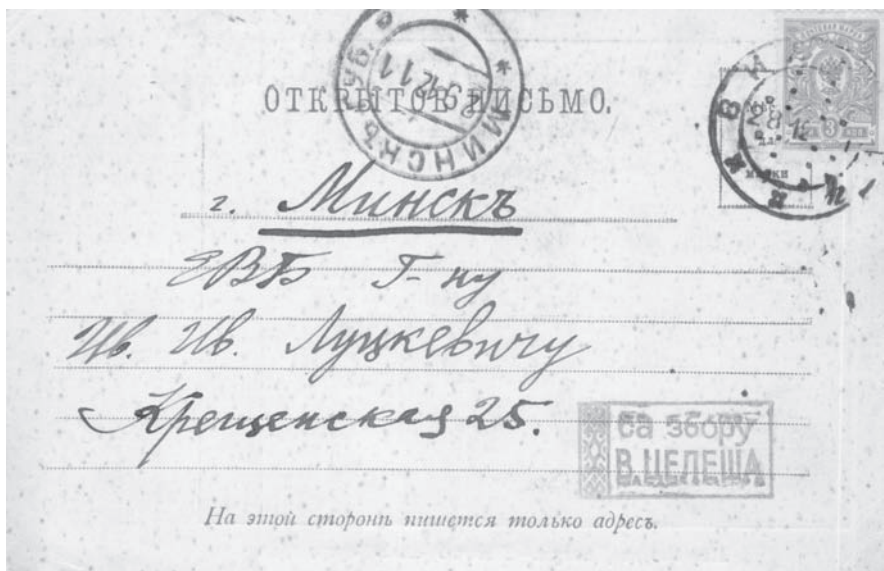 ОТКРЫТОЕ ПИСЬМО.
МИНСКЪ ГУБ.
28 12 11
3 КОП
МАРКИ
г. Минскъ
ЕВБ Г-ну
Ив. Ив. Луцкевичу
Крещенская 25.
са збору
В.ЦЕЛЕША
На этой сторонѣ пишется только адресъ.